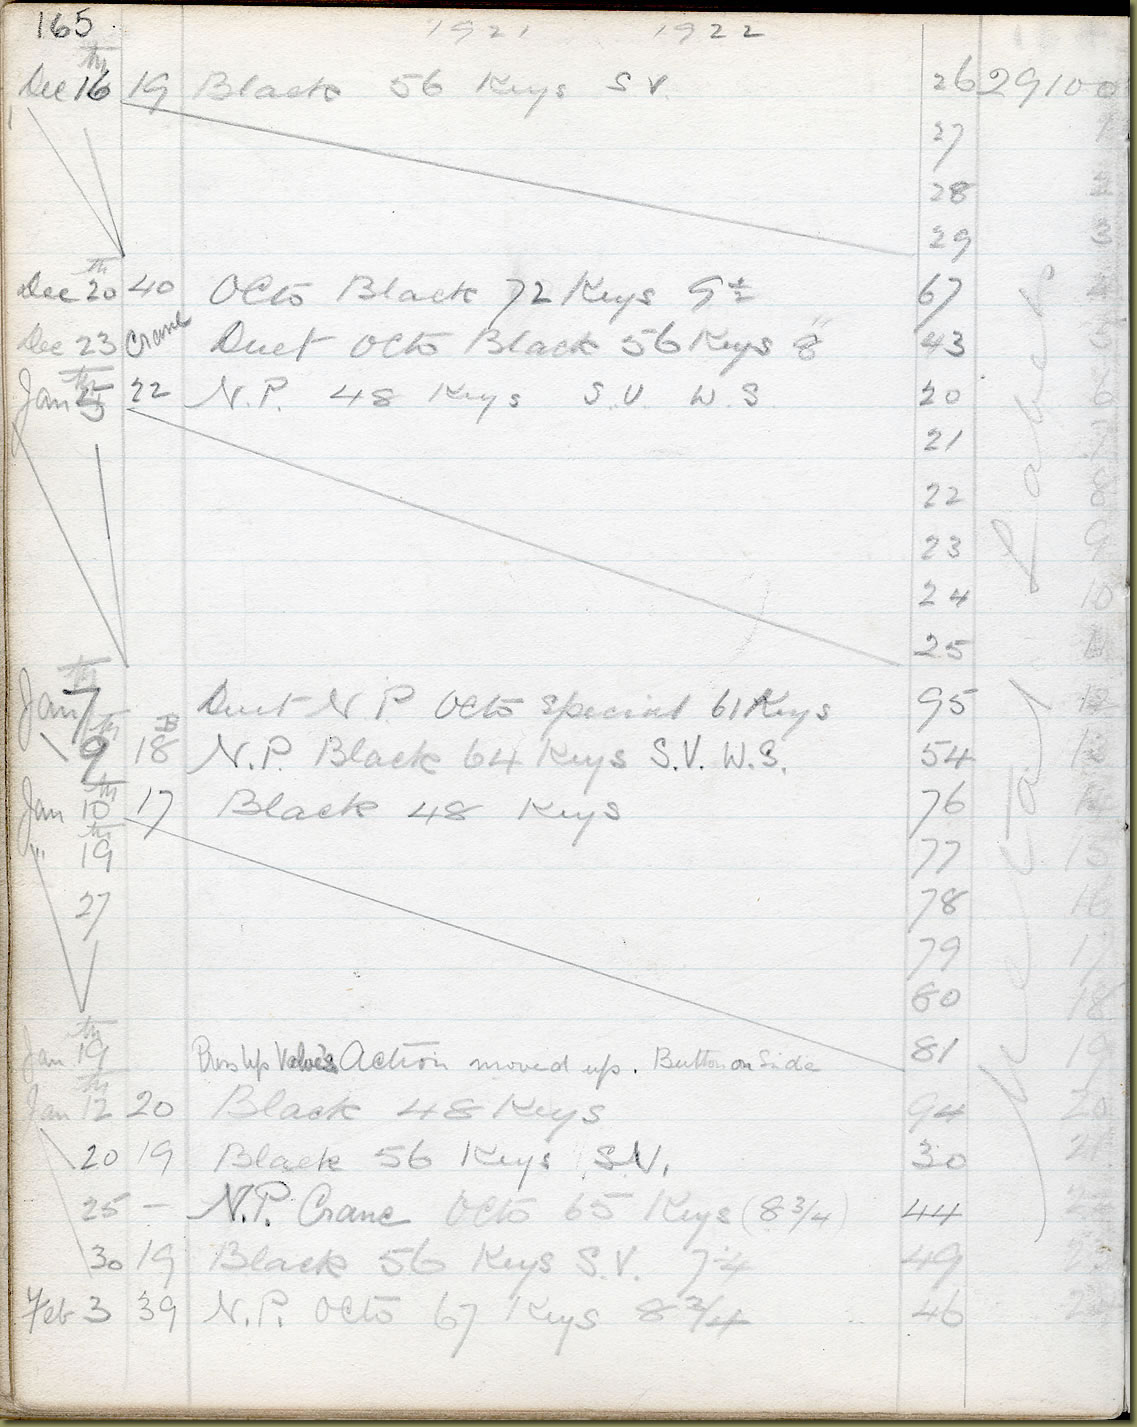 165 1921 1922
Dec 16th 19 Black 56 Keys S.V. 26 29100
27
28
29
Dec 20th 40 Octo Black 72 Keys 9½ 67
Dec 23 Crane Duet Octo Black 56 Keys 8" 43
Jan 5th 22 N.P. 48 Keys S.V. W.S. 20
21
22
23
24
25
Jan 7th Duet N.P. Octo Special 61 Keys 95
9th 18B N.P. Black 64 Keys S.V. W.S. 54
Jan 10th 17 Black 48 Keys 76
" 19th 77
27 78
79
80
Jan 19th Valves Action moved up. Button on Side 81
Jan 12th 20 Black 48 Keys 94
20 19 Black 56 Keys S.V. 30
25 — N.P. Crane Octo 65 Keys (8 3/4) 44
30 19 Black 56 Keys S.V. 49
Feb 3 39 N.P. Octo 67 Keys 8 3/4 46
9
10
12
15
16
17
18
19
20
21